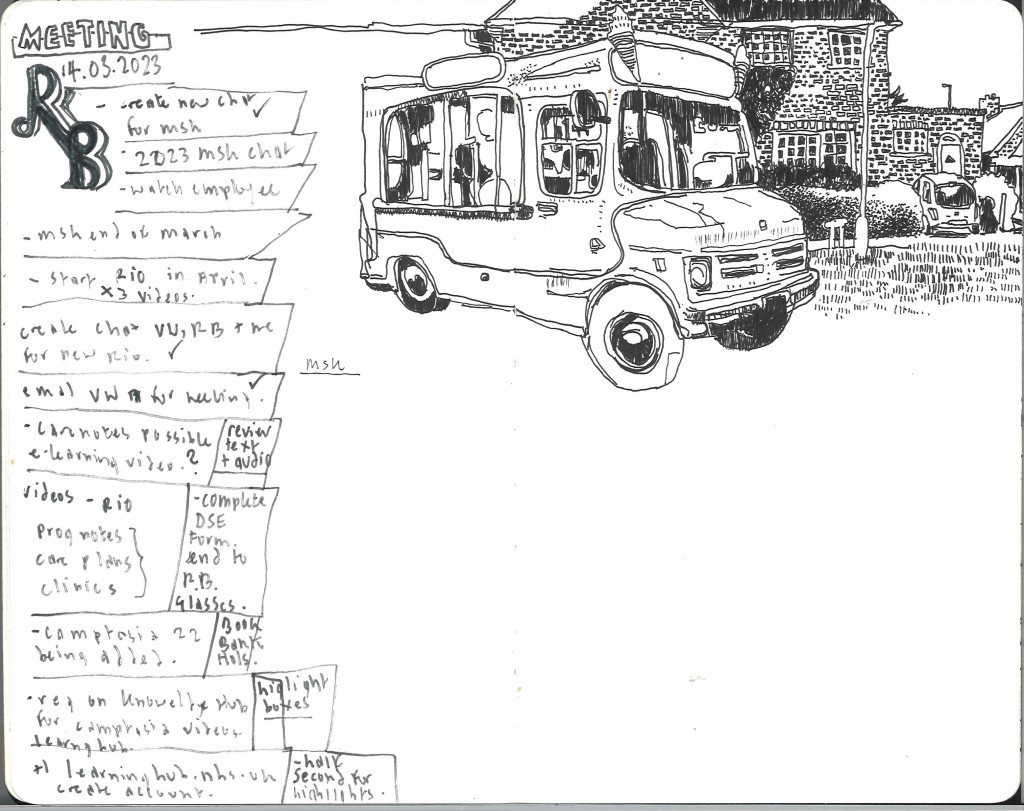 MEETING
14.03.2023
RB
- create new chat ✓
for msh
- 2023 msh chat
- watch employee
- msh end of march
- start RIO in April.
x3 videos.
create chat VW, RB + me
for new Rio. ✓
msh
email VW for meeting. ✓
- carenotes possible
e-learning video.?
review
text
+ audio
videos - Rio
prog notes
care plans
clinics
- complete
DSE
Form.
send to
R.B.
Glasses.
- Camptasia 22
being added.
BOOK
Bank
Hols.
- reg on Knowelge Hub
for camptasia videos.
learning hub.
highlight
boxes
learninghub.nhs.uk
create account.
- half
second for
highlights.